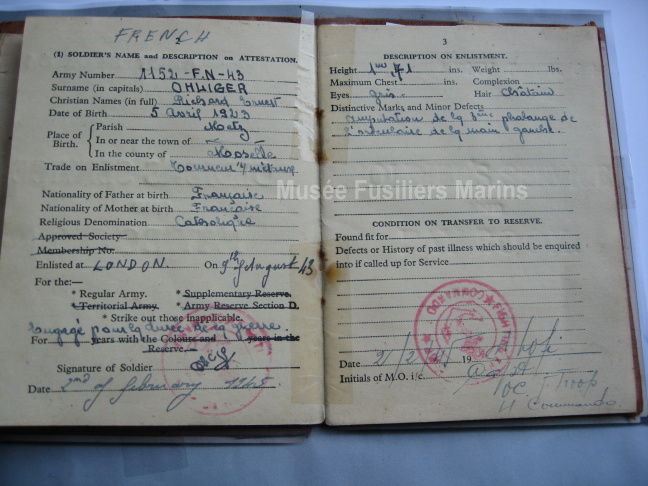 FRENCH
2
(1) SOLDIER'S NAME and DESCRIPTION on ATTESTATION.
Army Number 1152-FN-43
Surname (in capitals) OHLIGER
Christian Names (in full) Richard Ernest
Date of Birth 5 Avril 1923
Place of Birth. Parish Metz
In or near the town of
In the county of Moselle
Trade on Enlistment
Nationality of Father at birth Française
Nationality of Mother at birth Française
Religious Denomination Catholique
Approved Society
Membership No.
Enlisted at LONDON. On 9th August 43
For the:—
* Regular Army. * Supplementary Reserve.
* Territorial Army. * Army Reserve Section D.
* Strike out those inapplicable.
engagé pour la durée de la guerre.
For years with the Colours and years in the
Reserve.
Signature of Soldier
Date 2nd of february 1945
3
DESCRIPTION ON ENLISTMENT.
Height 1m 71 ins. Weight lbs.
Maximum Chest ins. Complexion
Eyes gris Hair Châtain
Distinctive Marks and Minor Defects
amputation de la phalange de
l'auriculaire de la main gauche.
CONDITION ON TRANSFER TO RESERVE.
Found fit for
Defects or History of past illness which should be enquired
into if called up for Service
Date 2/2 19
Initials of M.O. i/c.
OC Troop
Commando
Musée Fusiliers Marins